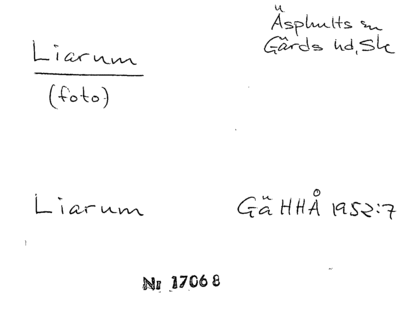 Liarum
(foto)
Äsphults sn
Gärds hd, Sk
Liarum
GäHHÅ 1952:7
Nr 17068